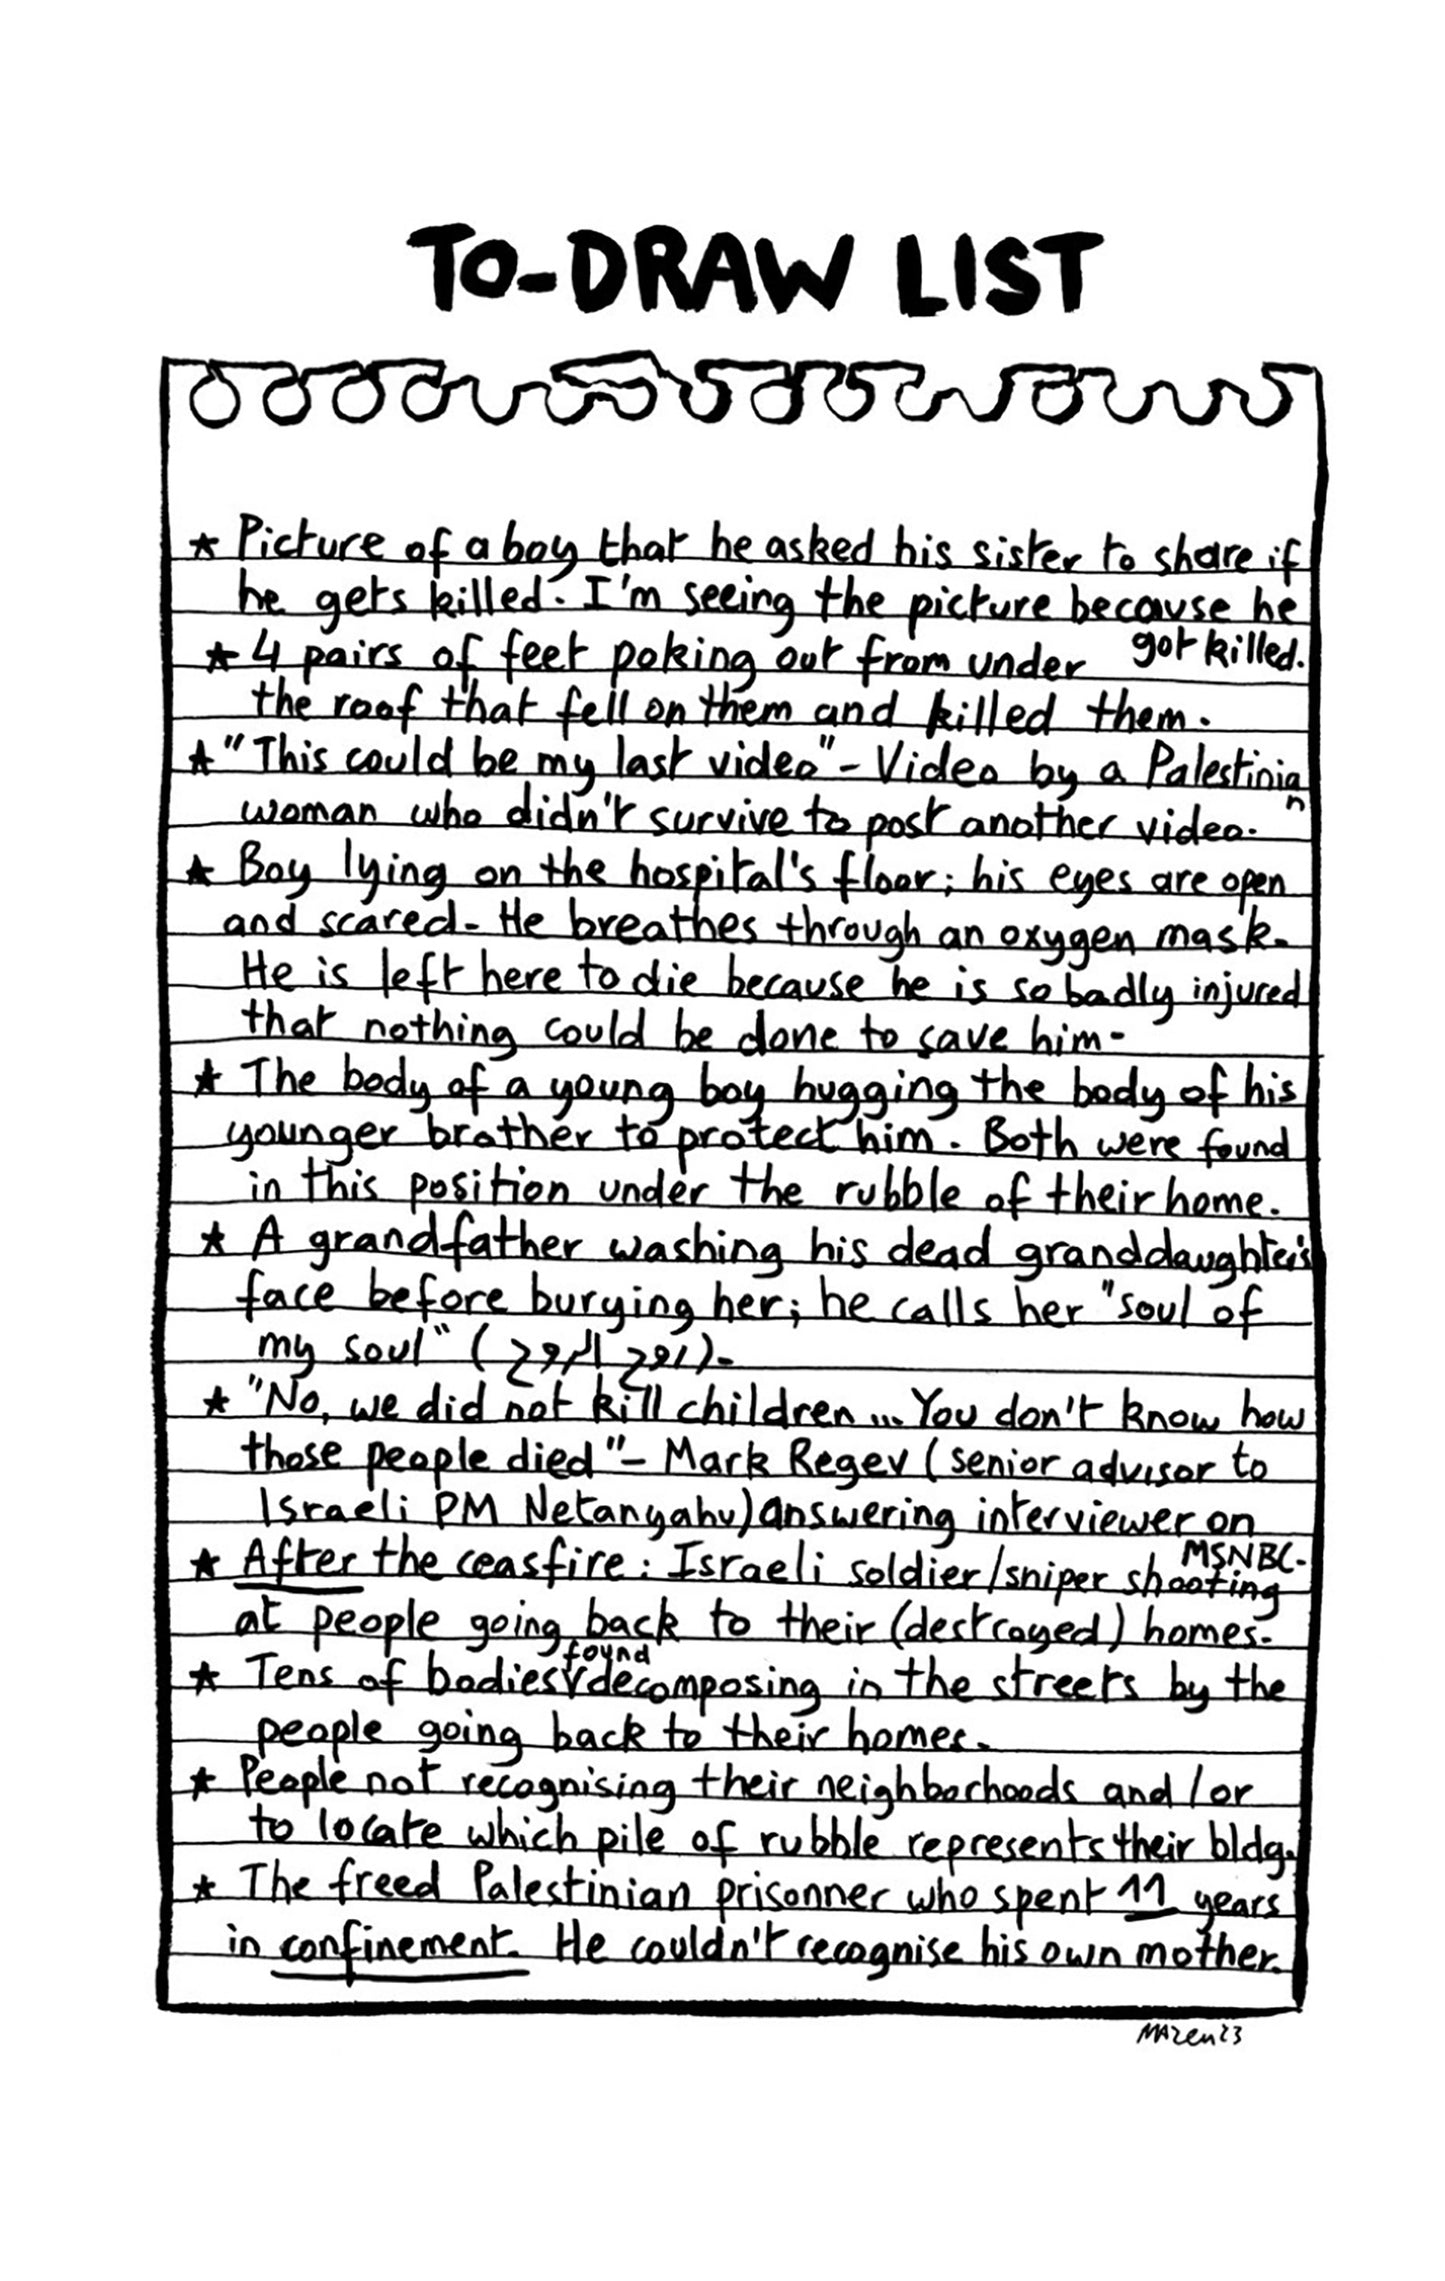 TO-DRAW LIST
★ Picture of a boy that he asked his sister to share if
he gets killed. I'm seeing the picture because he
got killed.
★ 4 pairs of feet poking out from under
the roof that fell on them and killed them.
★ "This could be my last video" - Video by a Palestinian
woman who didn't survive to post another video.
★ Boy lying on the hospital's floor; his eyes are open
and scared. He breathes through an oxygen mask.
He is left here to die because he is so badly injured
that nothing could be done to save him.
★ The body of a young boy hugging the body of his
younger brother to protect him. Both were found
in this position under the rubble of their home.
★ A grandfather washing his dead granddaughter's
face before burying her; he calls her "soul of
my soul" (روح الروح).
★ "No, we did not kill children... You don't know how
those people died" - Mark Regev (senior advisor to
Israeli PM Netanyahu) answering interviewer on
MSNBC.
★ After the ceasfire: Israeli soldier/sniper shooting
at people going back to their (destroyed) homes.
★ Tens of bodies found decomposing in the streets by the
people going back to their homes.
★ People not recognising their neighborhoods and/or
to locate which pile of rubble represents their bldg.
★ The freed Palestinian prisonner who spent 11 years
in confinement. He couldn't recognise his own mother.
MAzen23